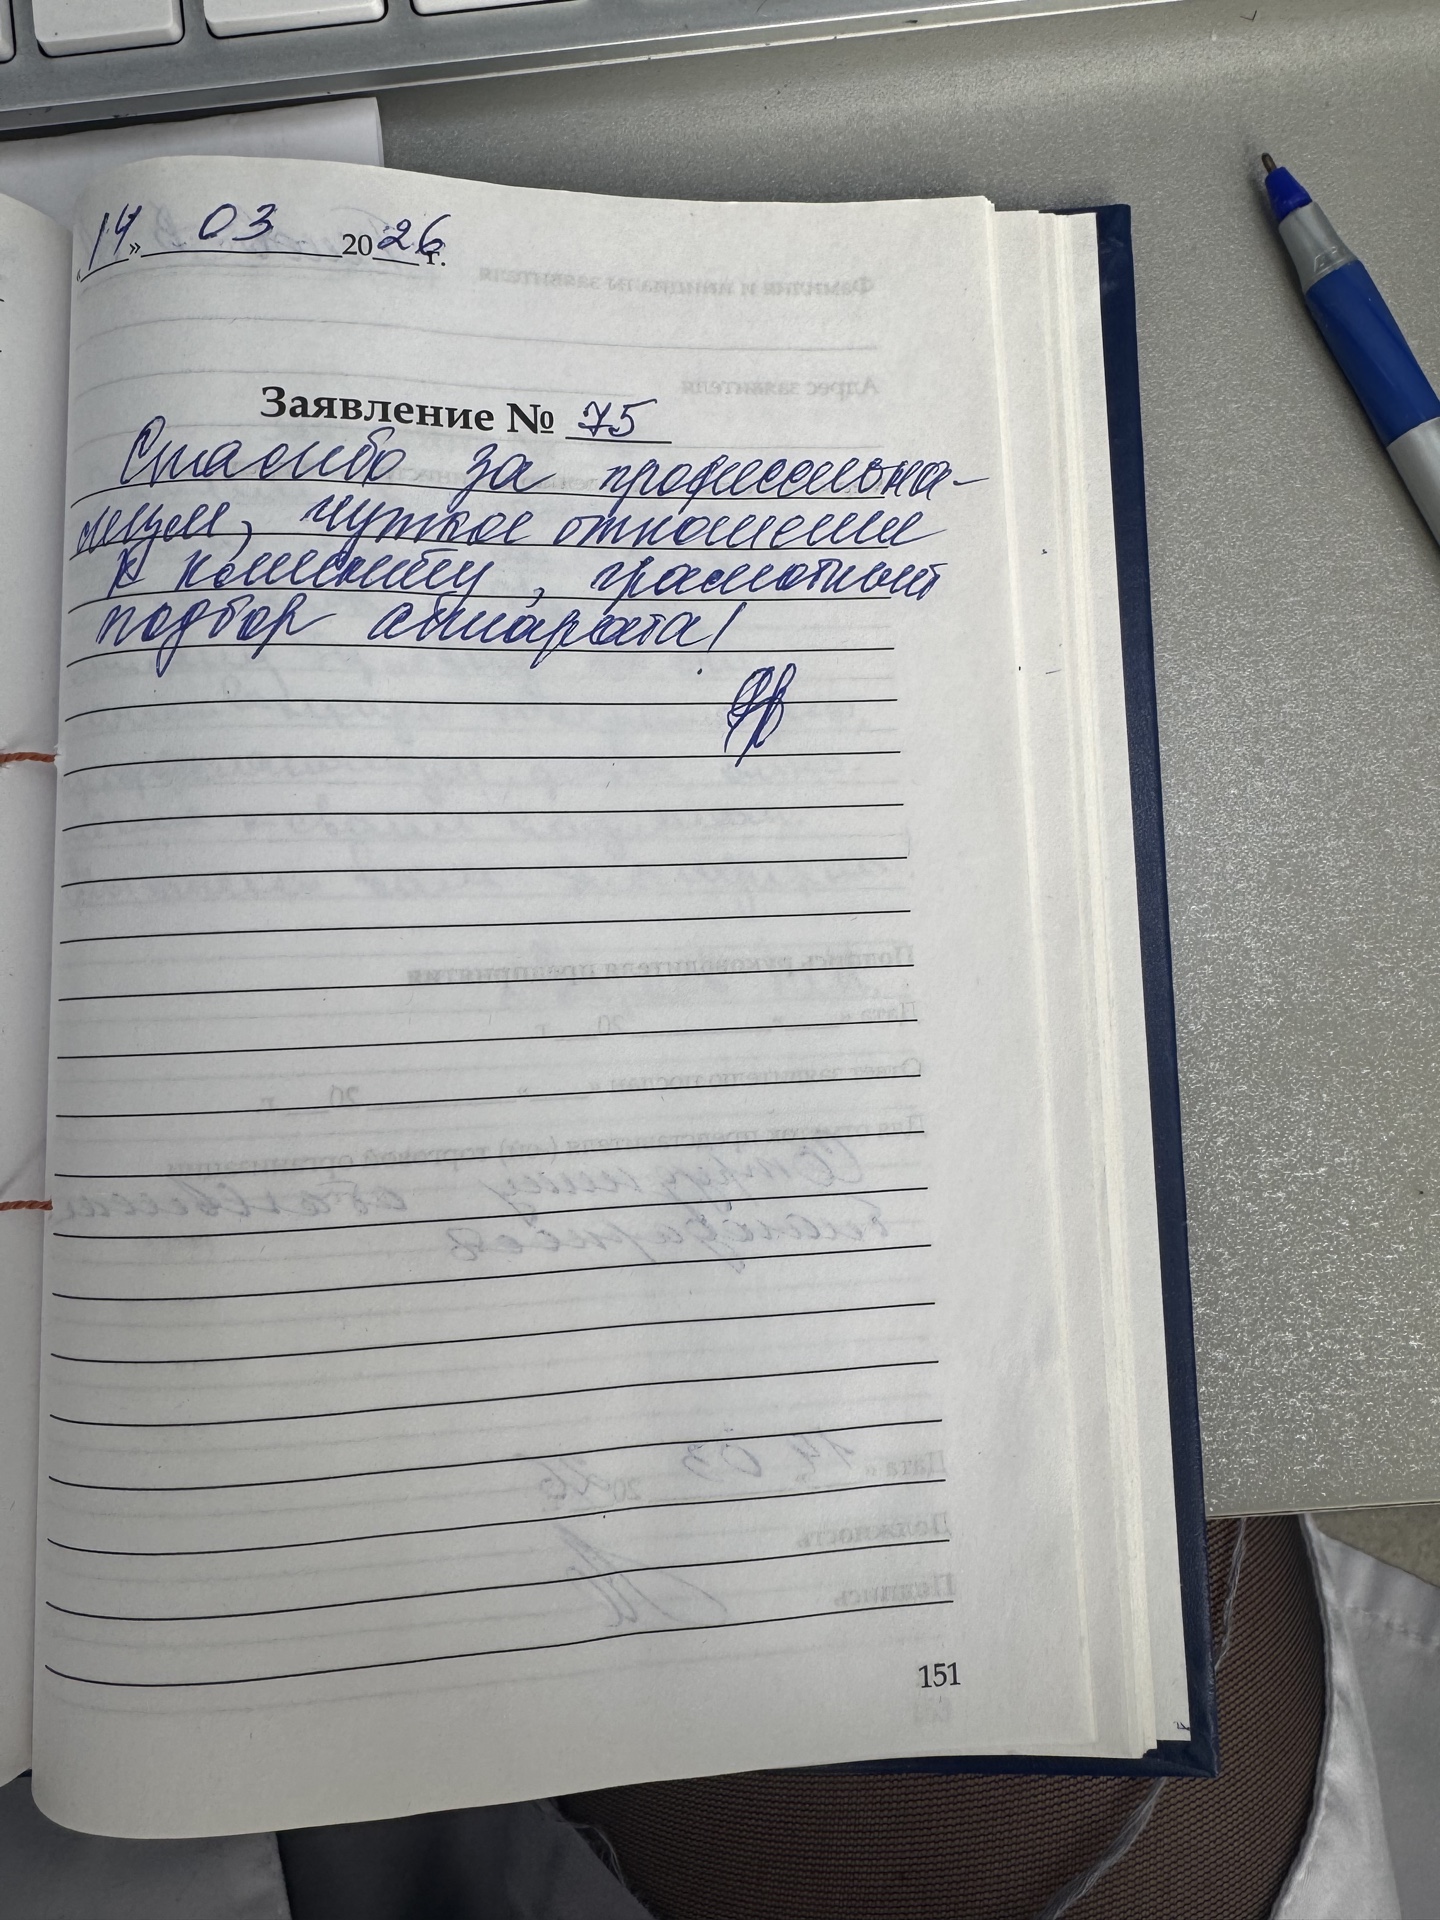 «14» 03 2026 г.
Заявление № 75
Спасибо за профессиона-
лизм, чуткое отношение
к клиенту, грамотный
подбор аппарата!
151